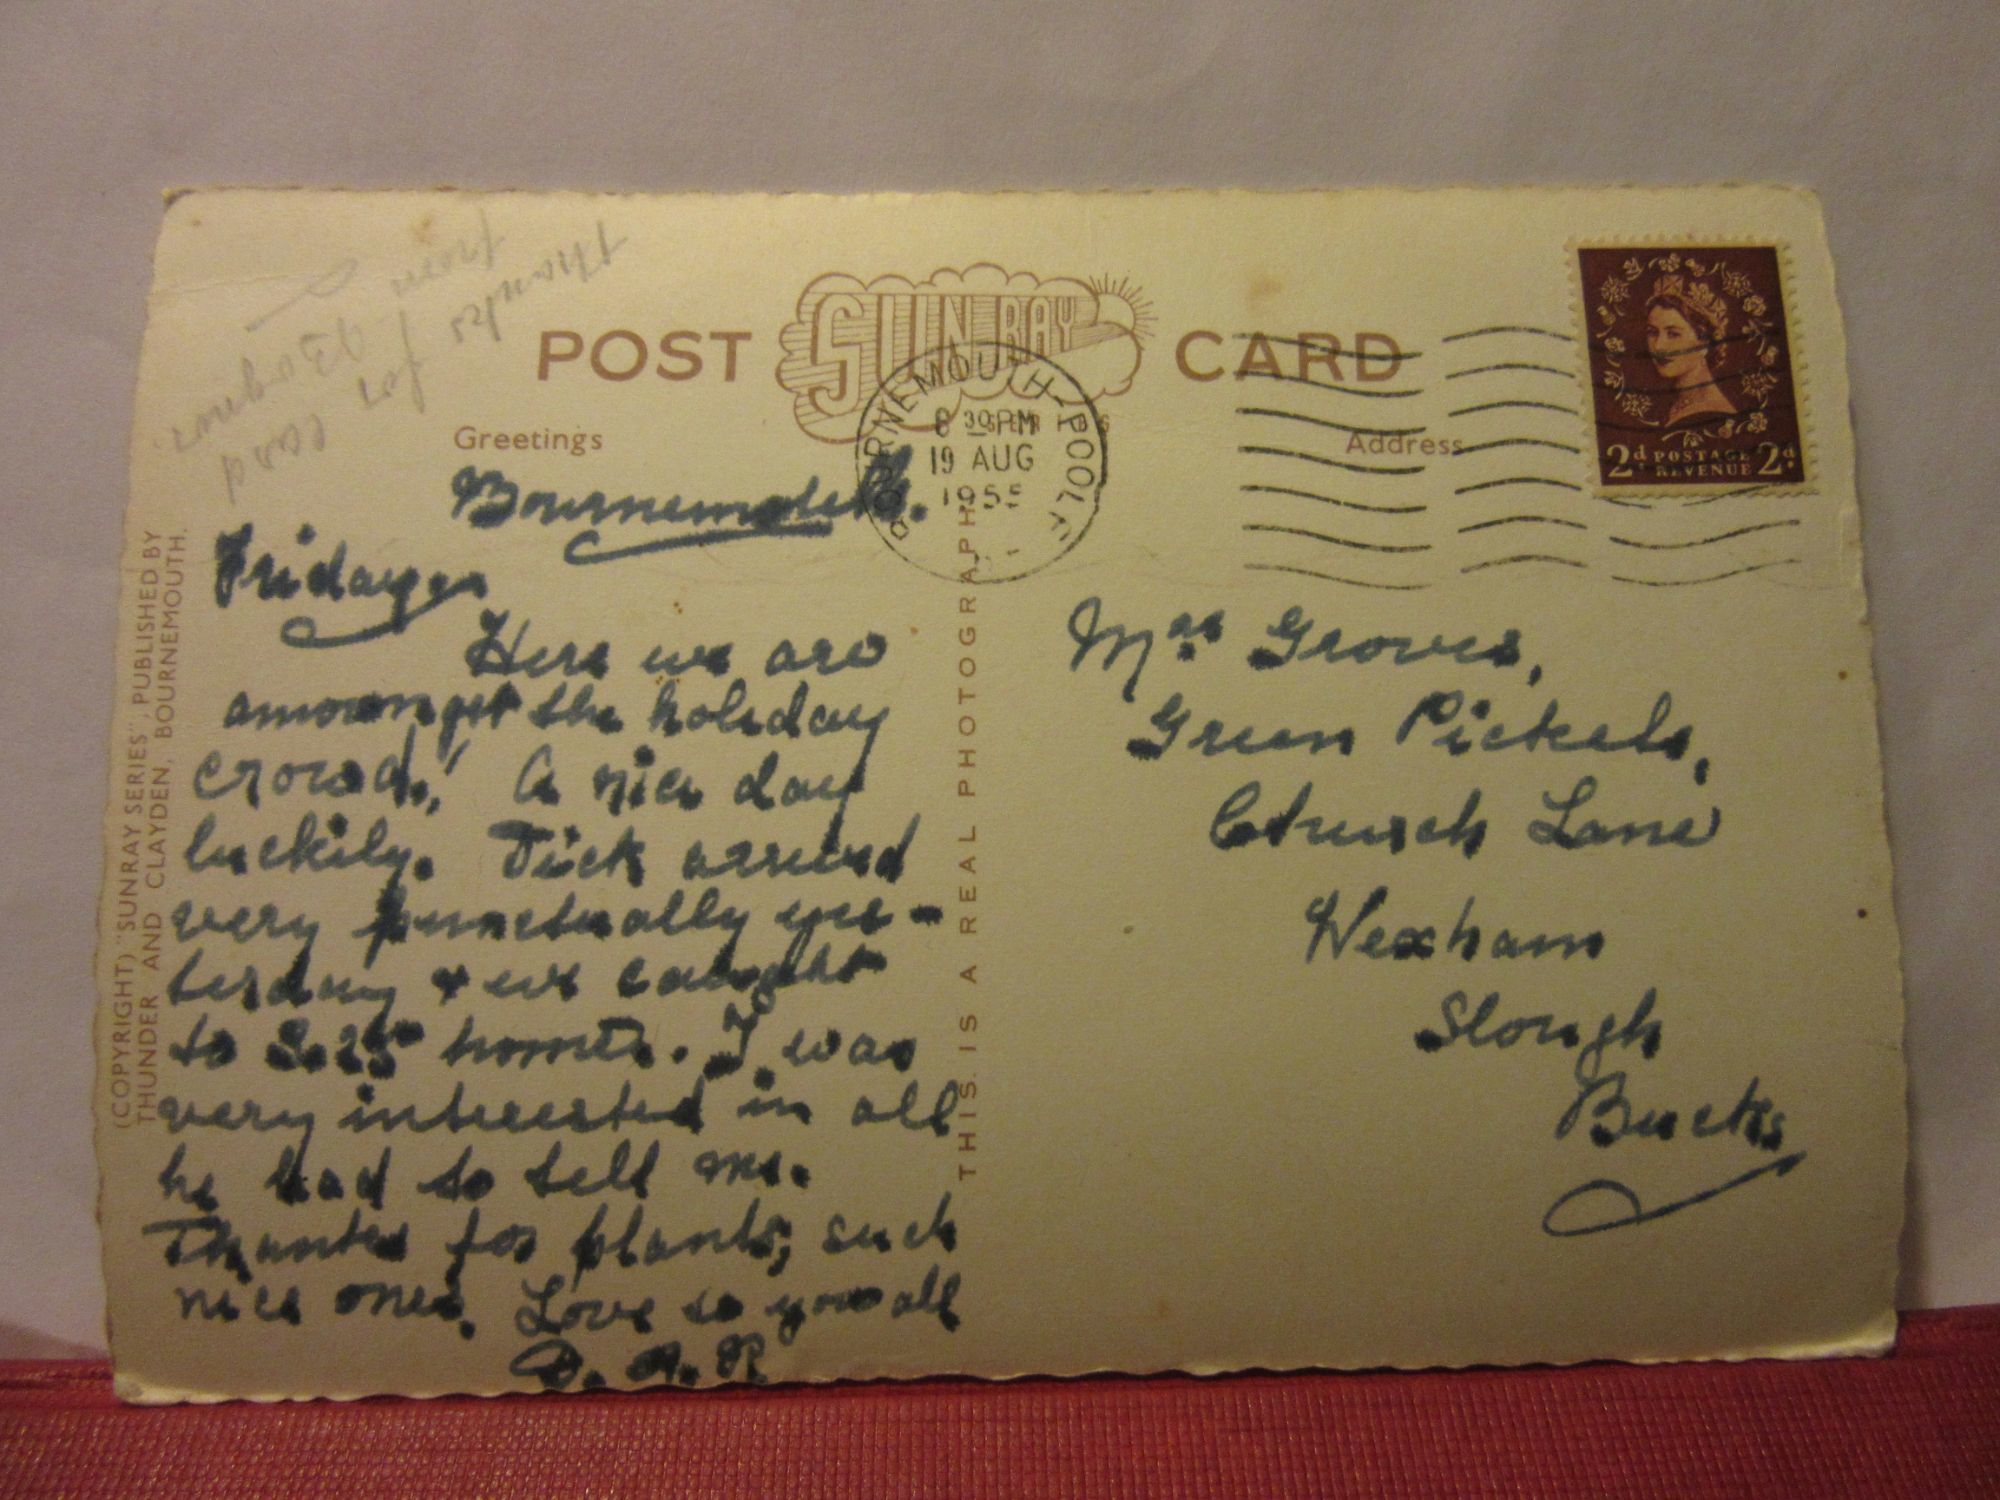 Thanks
from
for
card
Bognor.
POST SUNRAY CARD
SERIES
Greetings
Address
BOURNEMOUTH-POOLE
8 30 PM
19 AUG
1955
2d POSTAGE 2d
REVENUE
Bournemouth.
Friday
Here we are
amoungst the holiday
crowd! A nice day
luckily. Dick arrived
very punctually yes-
terday & we caught
to 3.25 home. I was
very interested in all
he had to tell me.
Thanks for plants, such
nice ones. Love to you all
D. A. R.
Mrs Groves,
Green Pickels,
Church Lane
Wexham
Slough
Bucks
(COPYRIGHT) "SUNRAY SERIES", PUBLISHED BY
THUNDER AND CLAYDEN, BOURNEMOUTH.
THIS IS A REAL PHOTOGRAPH